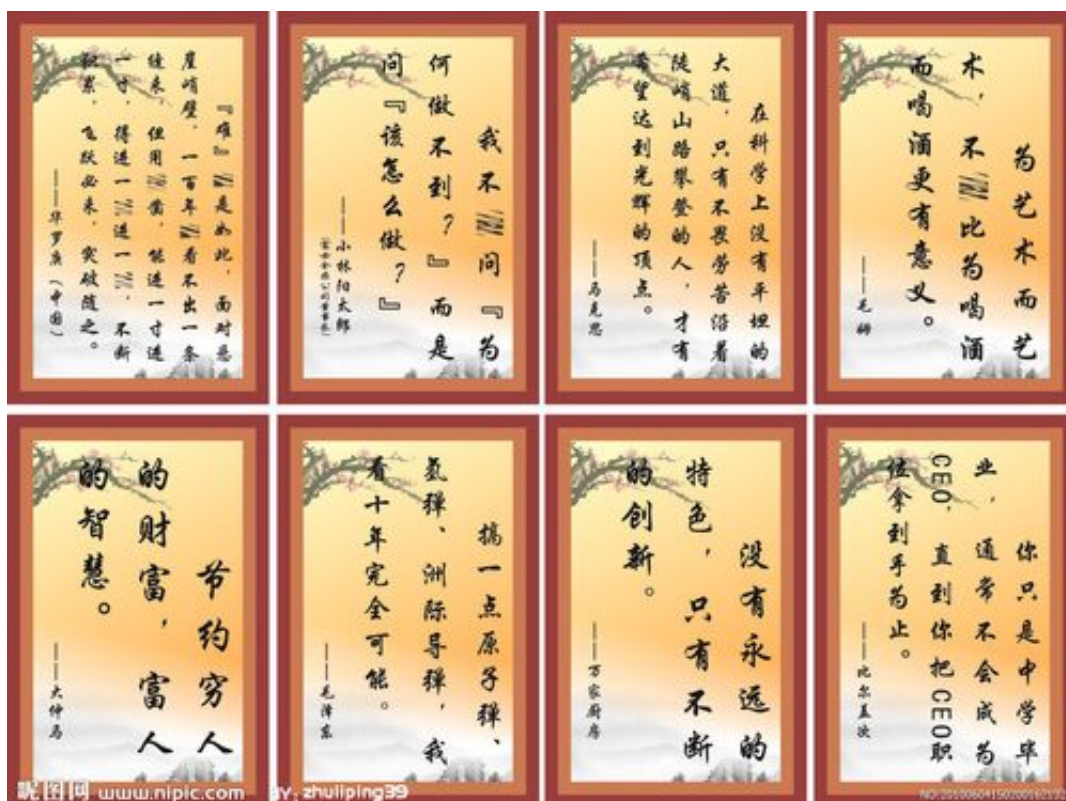 『难』是如此，面对悬
崖峭壁，一百年看不出一条
缝来，但用凿，能进一寸进
一寸，得进一进一，不断
积累，飞跃必来，突破随之。
——华罗庚（中国）
我不问『为
何做不到？』而是
问『该怎么做？』
——小林阳太郎
在科学上没有平坦的
大道，只有不畏劳苦沿着
陡峭山路攀登的人，才有
希望达到光辉的顶点。
——马克思
为艺术而艺
术，不比为喝酒
而喝酒更有意义。
——毛姆
节约穷人
的财富，富人
的智慧。
——大仲马
搞一点原子弹、
氢弹、洲际导弹，我
看十年完全可能。
——毛泽东
没有永远的
特色，只有不断
的创新。
——万家厨房
你只是中学毕
业，通常不会成为
CEO，直到你把CEO职
位拿到手为止。
——比尔盖茨
昵图网 www.nipic.com BY: zhuliping39